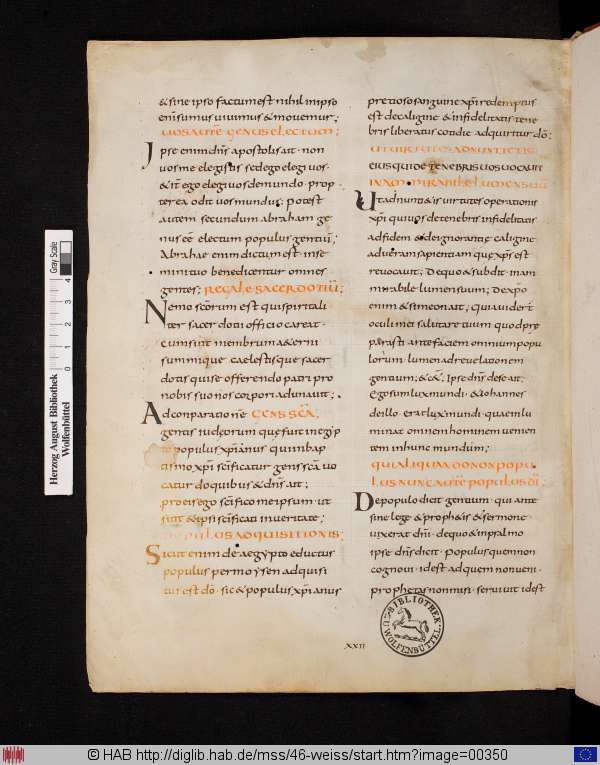 & sine ipso factum est nihil in ipso
enim sumus vivimus & movemur;
vos autē genus electum;
Ipse enim dn̄s apostolis ait · non
vos me elegistis sed ego elegi vos ·
& itē ego elegi vos de mundo · prop
terea odit vos mundus · potest
autem secundum abraham ge
nus eē electum populus gentiū;
Abrahae enim dictum est in se
mini tuo benedicentur omnes
gentes; regale sacerdotiū;
Nemo sc̄orum est qui spiritali
ter sacerdotii officio careat ·
cum sint membrum aeterni
summique caelestisque sacer
dotis qui se offerendo patri pro
nobis suo nos corpori adunavit;
Ad conparationē gens sc̄ā;
gentis iudeorum que fuit in egyp
to populus xp̄ianus qui in bap
tismo xp̄i sc̄ificatur gens sc̄ā vo
catur do quibus & dn̄s ait;
pro eis ego sc̄ifico me ipsum · ut
sint & ipsi sc̄ificati in veritate;
populus adquisitionis;
Sicut enim de aegypto eductus
populus per moysen adquisi
tus est dō · sic & populus xp̄ianus
pretioso sanguine xp̄i redemptus
est de caligine & infidelitatis tene
bris liberatus cotidie adquiritur dō;
ut virtutes adnuntietis
eius qui de tenebris vos vocavit
in ammirabile lumen suū
Ut adnuntietis virtutes operationis
xp̄i qui vos de tenebris infidelitatis
ad fidem & de ignorantiae caligine
ad veram sapientiam que xp̄s est
revocavit; De quo & subdit · in am
mirabile lumen suum; De xp̄o
enim & simeon ait; quia viderūt
oculi mei salutare tuum quod prę
parasti ante faciem omnium popu
lorum · lumen ad revelationem
gentium; & c&; Ipse dn̄s de se ait;
Ego sum lux mundi · & iohannes
de illo · Erat lux mundi · quae inlu
minat omnem hominem venien
tem in hunc mundum;
qui aliquando non popu
lus nunc autē populus dī;
De populo dicit gentium · qui ante
sine lege & prophetis & sermone
vixerat dn̄i · de quo & in psalmo
ipse dn̄s dicit · populus quem non
cognovi · id est ad quem non veni ·
prophetas non misi · servivit id est
XXII
BIBLIOTHEK
WOLFENBÜTTEL
Herzog August Bibliothek
Wolfenbüttel
Gray Scale
0 1 2 3 4
© HAB http://diglib.hab.de/mss/46-weiss/start.htm?image=00350